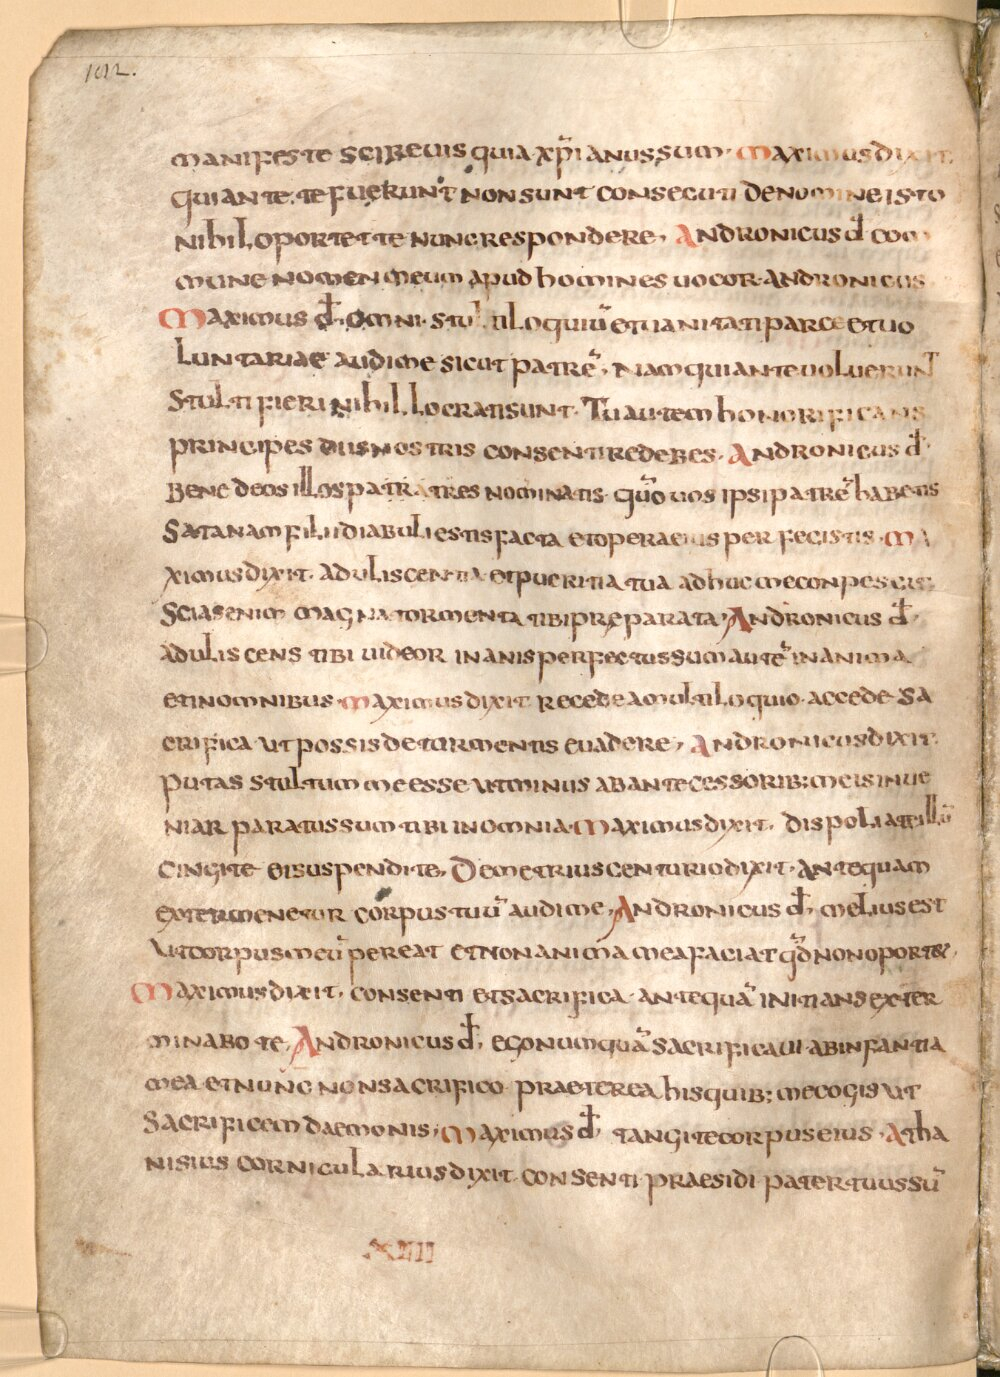 102.
manifeste scire uis quia xp̄ianus sum. Maximus dixit.
qui ante te fuerunt non sunt consecuti de nomine isto
nihil oportet te nunc respondere, Andronicus d̄ com
mune nomen meum apud homines uocor andronicus
Maximus d̄, omni stultiloquiū et uanitati parce et uo
luntariae audi me sicut patrē, nam qui ante uoluerunt
stulti fieri nihil locrati sunt. Tu autem honorificans
principes diis nostris consentire debes. Andronicus d̄.
Bene deos illos patr tres nominatis. quō uos ipsi patrē habetis
satanam filii diabuli estis facta et opera eius perfecistis. Ma
ximus dixit. aduliscentia et pueritia tua adhuc me conpescit
scias enim magna tormenta tibi preparata, Andronicus d̄.
aduliscens tibi uideor in anis perfectus sum autē in anima
et in omnibus. Maximus dixit recede a multiloquio. accede sa
crifica ut possis de turmentis euadere, Andronicus dixit.
Putas stultum me esse ut minus ab antecessorib; meis inue
niar paratus sum tibi in omnia. Maximus dixit, dispoliat illū
cingite ei suspendite, Demetrius centurio dixit. antequam
extermenetur corpus tuū audi me, Andronicus d̄, melius est
ut corpus meū pereat et non anima mea faciat qd̄ non oportet,
Maximus dixit, consenti et sacrifica antequā initians exter
minabo te, Andronicus d̄, ego numquā sacrificaui ab infantia
mea et nunc non sacrifico praeterea his quib; me cogis ut
sacrificem daemonis, Maximus d̄, tangite corpus eius. Atha
nisius cornicularius dixit consenti praesidi pater tuus sū
XIII